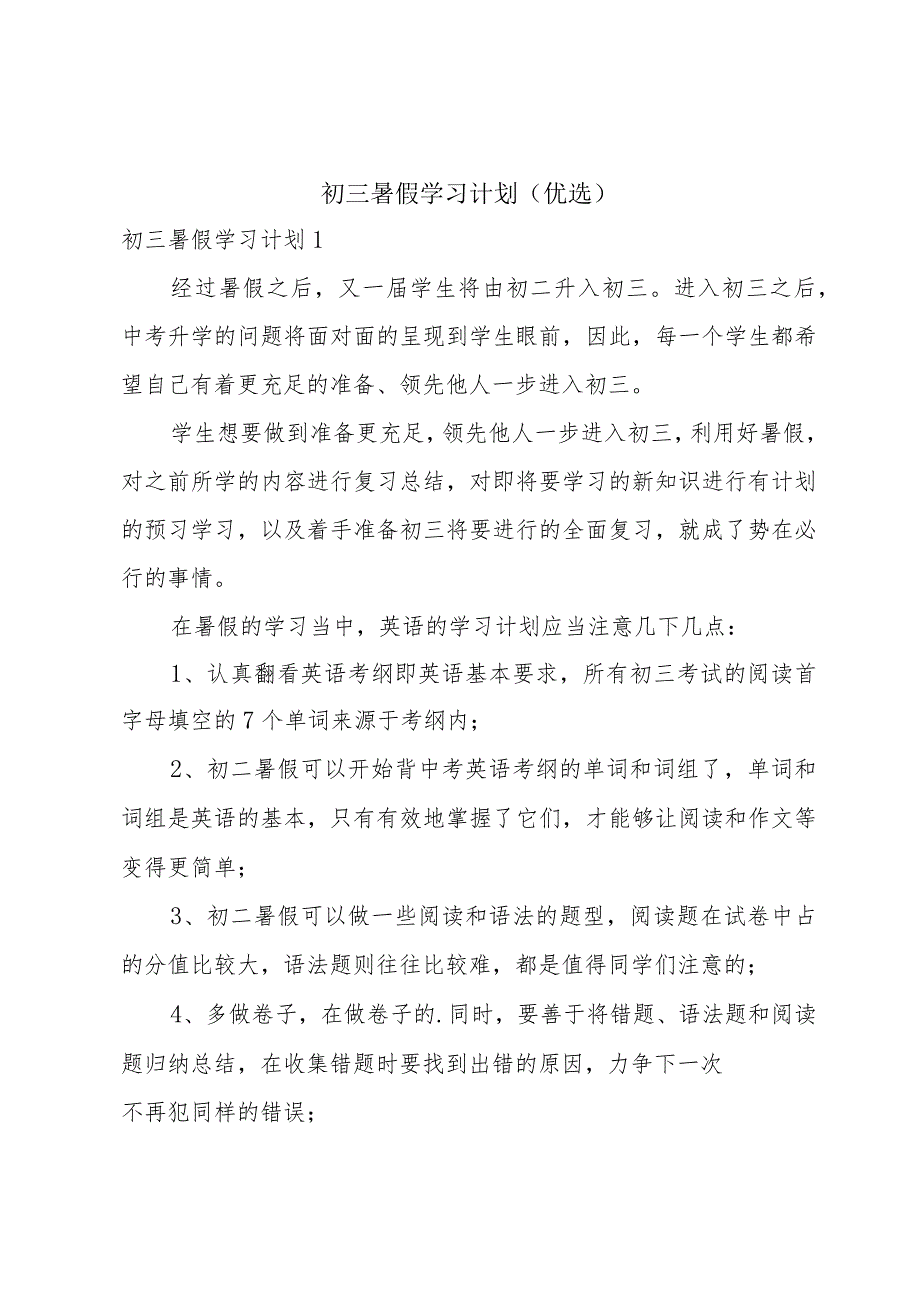 初三暑假学习计划（优选）
初三暑假学习计划1
经过暑假之后，又一届学生将由初二升入初三。进入初三之后，
中考升学的问题将面对面的呈现到学生眼前，因此，每一个学生都希
望自己有着更充足的准备、领先他人一步进入初三。
学生想要做到准备更充足，领先他人一步进入初三，利用好暑假，
对之前所学的内容进行复习总结，对即将要学习的新知识进行有计划
的预习学习，以及着手准备初三将要进行的全面复习，就成了势在必
行的事情。
在暑假的学习当中，英语的学习计划应当注意几下几点：
1、认真翻看英语考纲即英语基本要求，所有初三考试的阅读首
字母填空的7个单词来源于考纲内；
2、初二暑假可以开始背中考英语考纲的单词和词组了，单词和
词组是英语的基本，只有有效地掌握了它们，才能够让阅读和作文等
变得更简单；
3、初二暑假可以做一些阅读和语法的题型，阅读题在试卷中占
的分值比较大，语法题则往往比较难，都是值得同学们注意的；
4、多做卷子，在做卷子的.同时，要善于将错题、语法题和阅读
题归纳总结，在收集错题时要找到出错的原因，力争下一次
不再犯同样的错误；